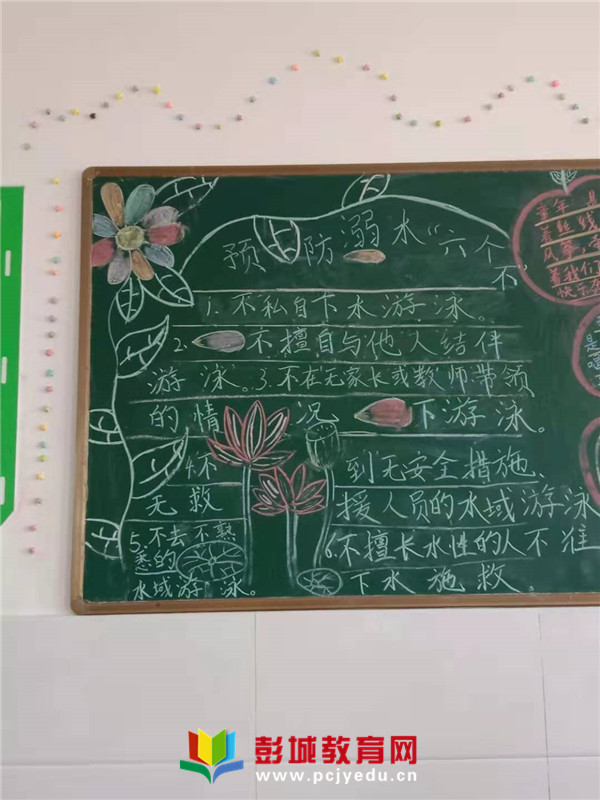 预防溺水“六个
不”
1.不私自下水游泳。
2.不擅自与他人结伴
游泳。3.不在无家长或教师带领
的情况下游泳。
4.不到无安全措施、
无救援人员的水域游泳
5.不去不熟
悉的
水域游泳。
6.不擅长水性的人不准
下水施救。
童年是
着丝线
风筝,
着我们
快乐
是
彭城教育网
www.pcjyedu.cn